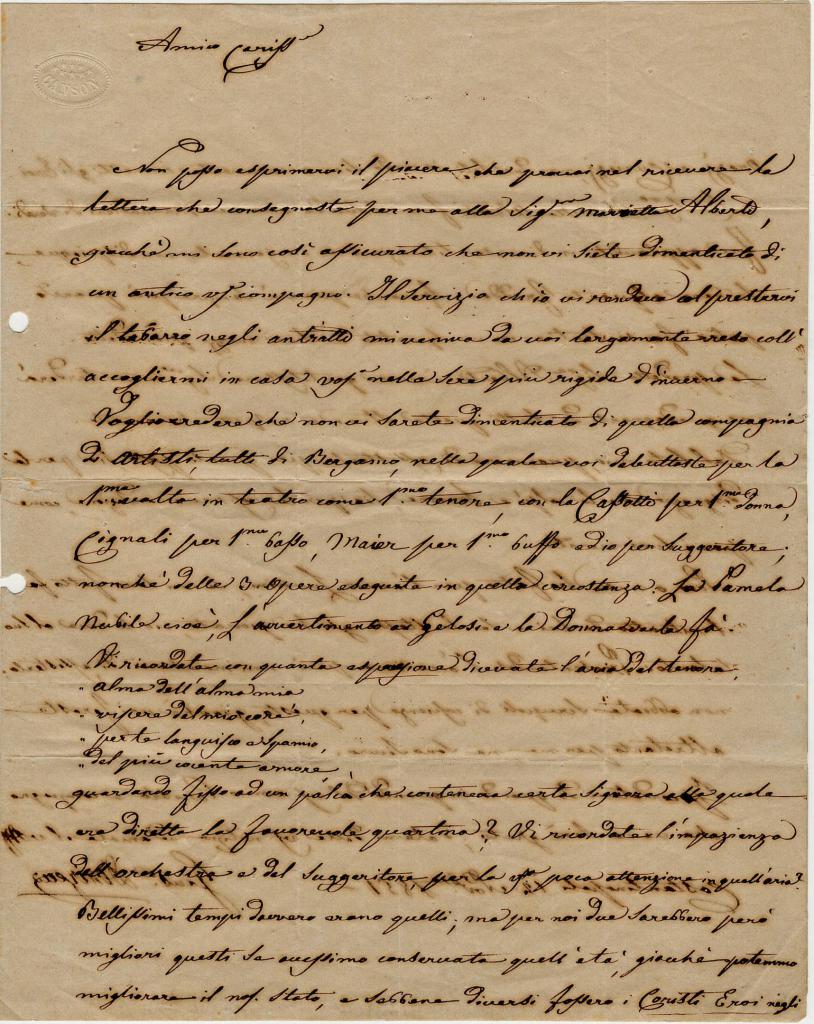 Amico Cariss.e
Non posso esprimervi il piacere che provai nel ricevere la
lettera che consegnaste per me alla Sig.ra Marietta Alberti,
giacchè mi sono così assicurato che non vi siete dimenticato di
un antico vs. compagno. Il Servizio ch'io vi rendeva col prestarvi
il tabarro negli antratti mi veniva da voi largamente reso coll'
accogliermi in casa vos. nella sere più rigide d'inverno
Voglio credere che non vi sarete dimenticato di quella compagnia
di artisti, tutti di Bergamo, nella quale voi debuttaste per la
1.ma volta in teatro come 1.mo tenore, con la Cassotti per 1.ma donna,
Cignali per 1.mo basso, Maier per 1.mo buffo ed io per Suggeritore,
nonchè delle 3 opere eseguite in quella circostanza. La Pamela
Nubile cioè, L'avvertimento ai Gelosi e la Donna la fà.
Vi ricordate con quanta espressione dicevate l'aria del tenore,
" alma dell'alma mia
" vispere del mio core,
" per te languisco e spasmio,
" del più cocente amore
guardando fisso ad un palco che conteneva certa Signora alla quale
era diretta la favorevole quartina? Vi ricordate l'impazienza
dell'orchestra e del Suggeritore per la vs. poca attenzione in quell'aria?
Bellissimi tempi davvero erano quelli; ma per noi due sarebbero però
migliori questi se avessimo conservata quell'età, giacchè potemmo
migliorare il nos. stato, e sebbene diversi fossero i Coristi Eroi negli